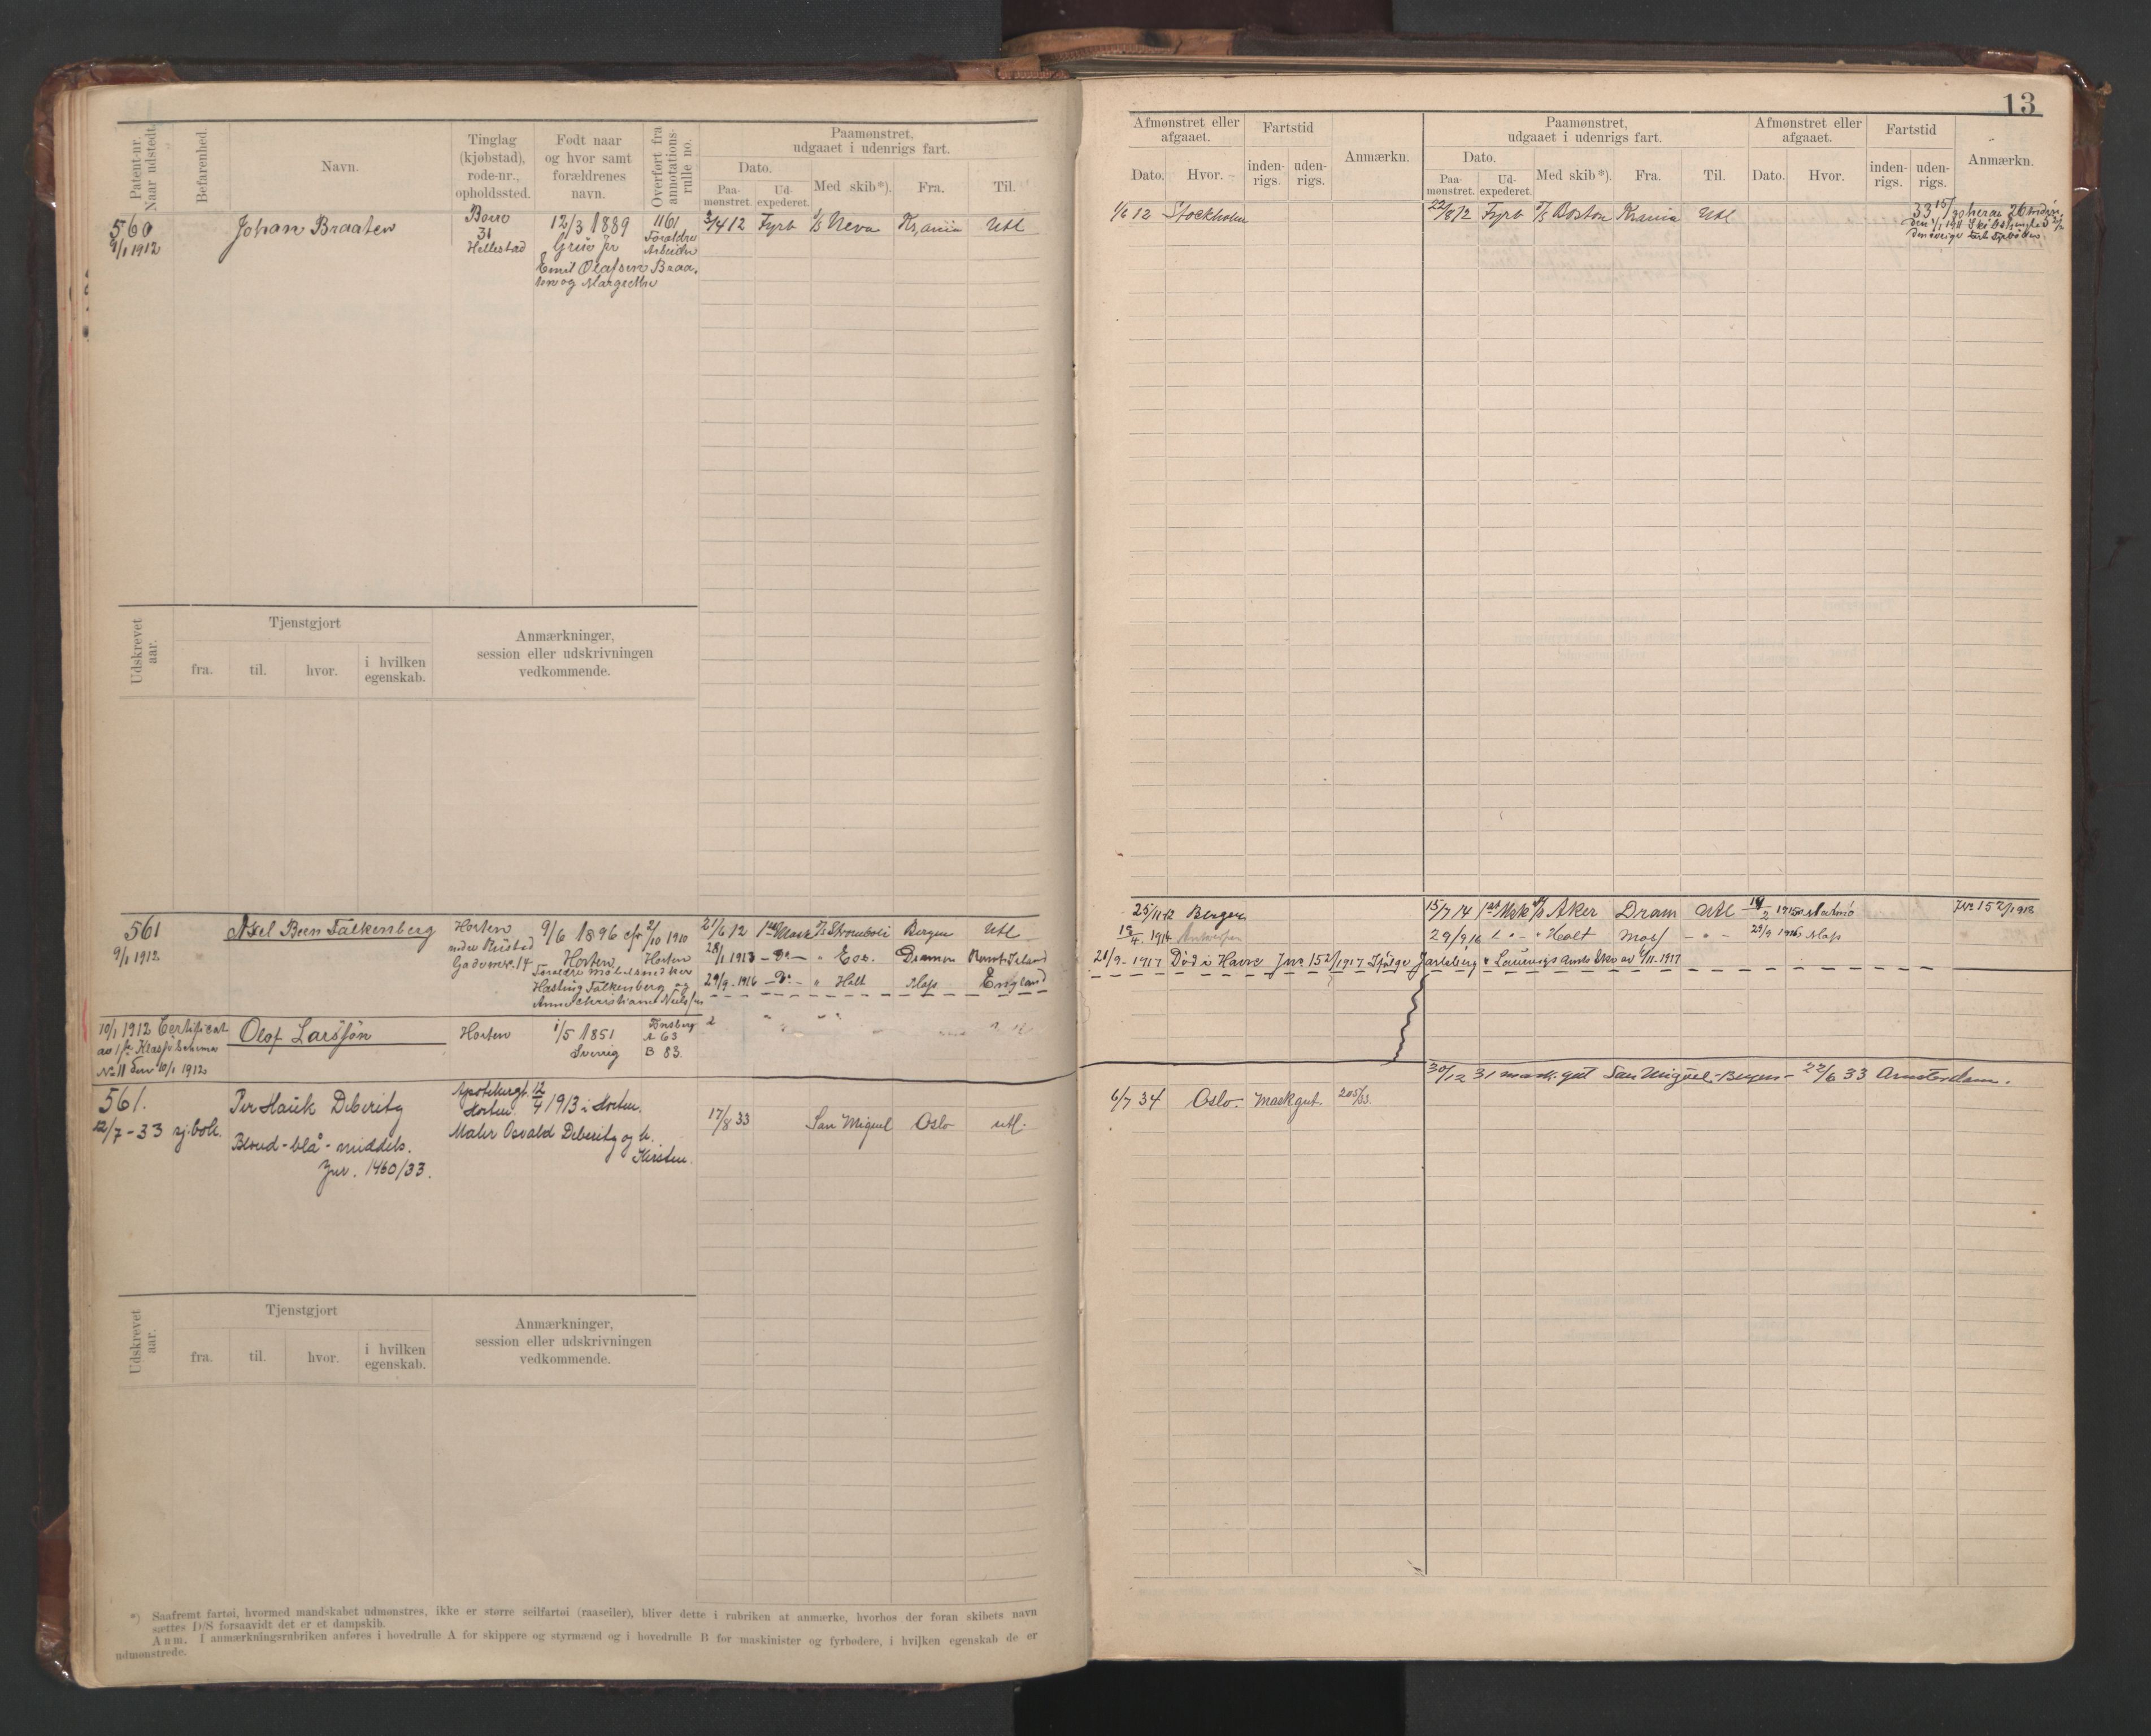 Patent-nr. Naar udstedt.
Befarenhed.
Navn.
Tinglag (kjøbstad), rode-nr., opholdssted.
Født naar og hvor samt forældrenes navn.
Overført fra annotations-rulle no.
Paamønstret, udgaaet i udenrigs fart.
Dato.
Paa-mønstret.
Ud-expederet.
Med skib*).
Fra.
Til.
560
9/1 1912
Johan Braaten
Borre
31
Hellestad
12/3 1889
1161
Forældre
Arbeider
Emil Olafsen Braa-
ten og Margrethe
3/4 12 Fyrb D/S Neva Kr,ania Utl
Udskrevet aar.
Tjenstgjort
fra.
til.
hvor.
i hvilken egenskab.
Anmærkninger, session eller udskrivningen vedkommende.
561
9/1 1912
Axel Been Falkenberg
Horten
9/6 1896 cfr 2/10 1910
Horten Horten
Forældre
Hasting Falkenberg og
Anne Christiane
21/6 12 D/S Stromboli Bergen Utl
28/1 1913 Drammen
29/9-1916 " Holt Moss England
10/1 1912 Certificat
No 11 den 10/1 1912
Olof Larsson
Horten
1/5 1851
Sverrig
Tønsberg
A 63
B 83.
561.
12/7-33 sj.bok.
Per Hauk Deberitz
Blond-blå-middels.
Jnr. 1460/33.
Apotekergt.
Horten.
12/4 1913 i Horten.
Maler Osvald Deberitz og h.
Kirsten.
17/8 33 San Miguel Oslo utl.
Udskrevet aar.
Tjenstgjort
fra.
til.
hvor.
i hvilken egenskab.
Anmærkninger, session eller udskrivningen vedkommende.
*) Saafremt fartøi, hvormed mandskabet udmønstres, ikke er større seilfartøi (raaseiler), bliver dette i rubriken at anmærke, hvorhos der foran skibets navn
sættes D/S forsaavidt det er et dampskib.
Anm. I anmærkningsrubriken anføres i hovedrulle A for skippere og styrmænd og i hovedrulle B for maskinister og fyrbødere, i hvilken egenskab de er
udmønstrede.
13
Afmønstret eller afgaaet.
Dato.
Hvor.
Fartstid
inden-rigs.
uden-rigs.
Anmærkn.
Paamønstret, udgaaet i udenrigs fart.
Dato.
Paa-mønstret.
Ud-expederet.
Med skib*).
Fra.
Til.
Afmønstret eller afgaaet.
Dato.
Hvor.
Fartstid
inden-rigs.
uden-rigs.
Anmærkn.
1/6 12 Stockholm
22/8 12 Fyrb D/S Boston Krania Utl
25/11-12 Bergen
15/7 14 D/S Aker Dram Utl
19/4 1914 Antwerpen
29/9 16 " Holt Moss - " - 29/9 1916 Moss
21/9-1917 Død i Havre Jnr 152/1917 Ifølge Jarlsberg & Laurvigs Amts Skr av 6/11-1917
30/12 31 mask.gut San Miguel-Bergen- 22/6 33 Amsterdam.
6/7 34 Oslo. Maskgut. 205/33.